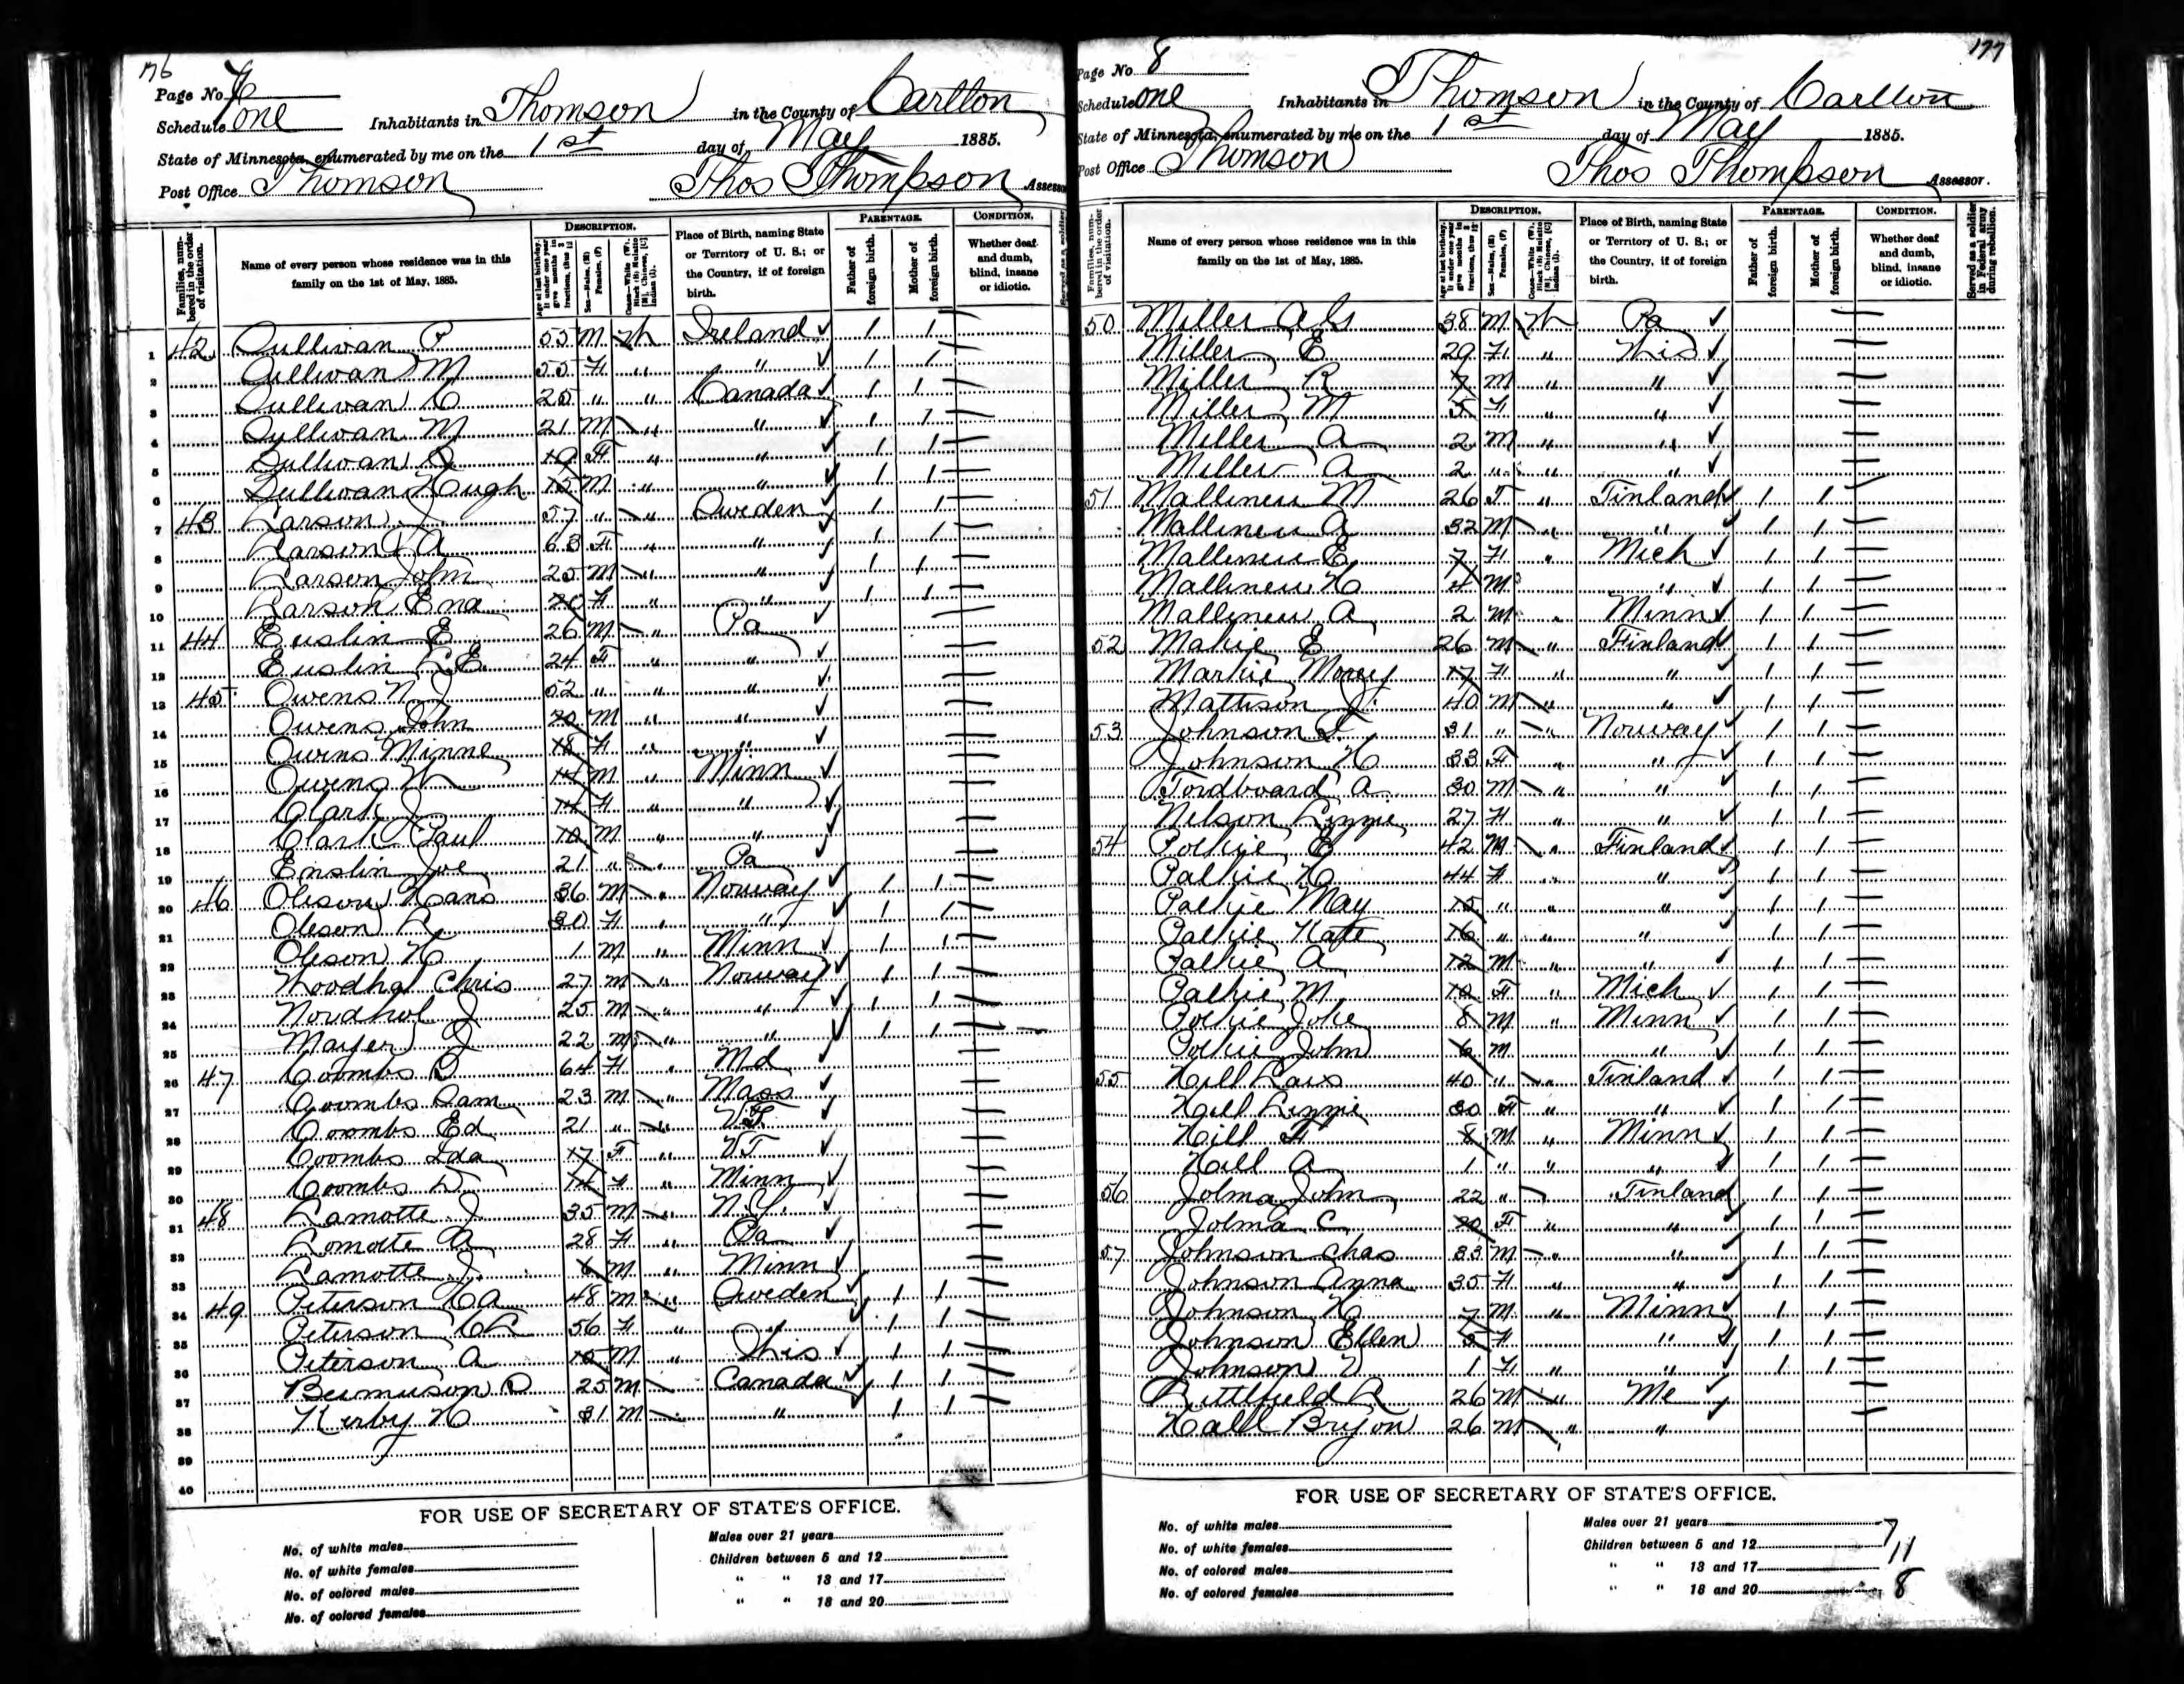 176
Page No. 7
Schedule one Inhabitants in Thomson in the County of Carlton
State of Minnesota, enumerated by me on the 1st day of May 1885.
Post Office Thomson Thos Thompson Assessor
Families, numbered in the order of visitation.
Name of every person whose residence was in this family on the 1st of May, 1885.
DESCRIPTION.
Age at last birthday. If under one year give months in fractions, thus
Sex—Males, (M) Females, (F)
Place of Birth, naming State or Territory of U. S.; or the Country, if of foreign birth.
PARENTAGE.
Father of foreign birth.
Mother of foreign birth.
CONDITION.
Whether deaf and dumb, blind, insane or idiotic.
1 42 Sullivan P 55 M Wh Ireland ✓ 1 1 —
2 Sullivan M 55 F " " ✓ 1 1 —
3 Sullivan C 25 " " Canada ✓ 1 1 —
4 Sullivan M 21 M " " ✓ 1 1 —
5 Sullivan 19 F " " ✓ 1 1 —
6 Sullivan Hugh 15 M " " ✓ 1 1 —
7 43 Larson J 57 " " Sweden ✓ 1 1 —
8 Larson A 63 F " " ✓ 1 1 —
9 Larson John 25 M " " ✓ 1 1 —
10 Larson Ena 20 F " " ✓ 1 1 —
11 44 Euslin E 26 M " Pa ✓ —
12 Euslin L.E. 24 F " " ✓ —
13 45 Owens N J 52 " " " ✓ —
14 Owens John 20 M " " ✓ —
15 Owens Minne 18 F " " ✓ —
16 Owens W 14 M " Minn ✓ —
17 Clark J 14 F " " ✓ —
18 Clark Paul 10 M " " ✓ —
19 Enslin Joe 21 " " Pa —
20 46 Oleson Hans 36 M " Norway ✓ 1 1 —
21 Oleson L 30 F " " ✓ 1 1 —
22 Oleson H 1 M " Minn ✓ 1 1 —
23 Chris 27 M " Norway ✓ 1 1 —
24 Nordhol J 25 M " " ✓ 1 1 —
25 Mayer J 22 M " " ✓ 1 1 —
26 47 Coombs 64 F " Md ✓ —
27 Coombs Sam 23 M " Mass ✓ —
28 Coombs Ed 21 " " VT ✓ —
29 Coombs Ida 17 F " VT ✓ —
30 Coombs D 14 F " Minn ✓ —
31 48 Lamotte J 35 M " N.Y. ✓ —
32 Lamotte A 28 F " Pa ✓ —
33 Lamotte J. 6 M " Minn ✓ —
34 49 Peterson C A 48 M " Sweden ✓ 1 1 —
35 Peterson 56 F " " ✓ 1 1 —
36 Peterson A 10 M " Wis ✓ 1 1 —
37 25 M Canada ✓ 1 1 —
38 Kirby H 31 M " 1 1 —
39
40
FOR USE OF SECRETARY OF STATE'S OFFICE.
No. of white males
No. of white females
No. of colored males
No. of colored females
Males over 21 years
Children between 5 and 12
" " 13 and 17
" " 18 and 20
177
Page No 8
Schedule one Inhabitants in Thomson in the County of Carlton
State of Minnesota, enumerated by me on the 1st day of May 1885.
Post Office Thomson Thos Thompson Assessor.
Families, numbered in the order of visitation.
Name of every person whose residence was in this family on the 1st of May, 1885.
DESCRIPTION.
Age at last birthday. If under one year give months in fractions, thus
Sex—Males, (M) Females, (F)
Place of Birth, naming State or Territory of U. S.; or the Country, if of foreign birth.
PARENTAGE.
Father of foreign birth.
Mother of foreign birth.
CONDITION.
Whether deaf and dumb, blind, insane or idiotic.
Served as a soldier in Federal army during rebellion.
50 Miller A G 38 M Wh Pa ✓ —
Miller E 29 F " Wis ✓ —
Miller R 7 M " " ✓ —
Miller M 5 F " " ✓ —
Miller A 2 M " " ✓ —
Miller A 2 " " " ✓ —
51 M 26 F " Finland ✓ 1 1 —
A 32 M " " ✓ 1 1 —
E 7 F " Mich ✓ 1 1 —
H 4 M " ✓ 1 1 —
A 2 M " Minn ✓ 1 1 —
52 Makie E 26 M " Finland ✓ 1 1 —
Markie 17 F " " ✓ 1 1 —
Mattison J. 40 M " " ✓ 1 1 —
53 Johnson F 31 " " Norway ✓ 1 1 —
Johnson H 33 F " " ✓ 1 1 —
Fordboard A 30 M " " ✓ 1 1 —
Nelson Lizzie 27 F " " ✓ 1 1 —
54 Polkie E 42 M " Finland ✓ 1 1 —
Palkie H 44 F " " ✓ 1 1 —
Palkie May 15 " " " ✓ 1 1 —
Palkie Kate 16 " " " ✓ 1 1 —
Palkie A 12 M " " ✓ 1 1 —
Palkie M 10 F " Mich ✓ 1 1 —
Polkie 8 M " Minn ✓ 1 1 —
Polkie John 6 M " ✓ 1 1 —
55 Hill 40 " " Finland ✓ 1 1 —
Hill Lizzie 30 F " " ✓ 1 1 —
Hill 8 M " Minn ✓ 1 1 —
Hill A 1 " " " ✓ 1 1 —
56 Jolma John 22 " Finland 1 1 —
Jolma C 20 F " " ✓ 1 1 —
57 Johnson Chas 33 M " " ✓ 1 1 —
Johnson Anna 35 F " " ✓ 1 1 —
Johnson H 7 M " Minn ✓ 1 1 —
Johnson Ellen 5 F " ✓ 1 1 —
Johnson 1 F " " ✓ 1 1 —
26 M " Me ✓ —
Hall 26 M " " ✓ —
FOR USE OF SECRETARY OF STATE'S OFFICE.
No. of white males
No. of white females
No. of colored males
No. of colored females
Males over 21 years
Children between 5 and 12 7
" " 13 and 17 11
" " 18 and 20 8